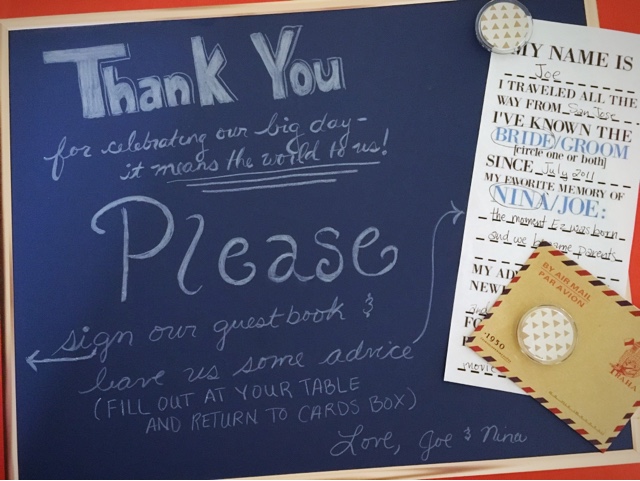 Thank You
for celebrating our big day -
it means the world to us!
Please
sign our guestbook &
leave us some advice
(FILL OUT AT YOUR TABLE
AND RETURN TO CARDS BOX)
Love, Joe & Nina
MY NAME IS
Joe
I TRAVELED ALL THE
WAY FROM San Jose
I'VE KNOWN THE
BRIDE/GROOM
[circle one or both]
SINCE July 2011
MY FAVORITE MEMORY OF
NINA/JOE:
the moment Ez was born
and we became parents
MY AD
NEW
and
FO
movie
BY AIR MAIL
PAR AVION
1950